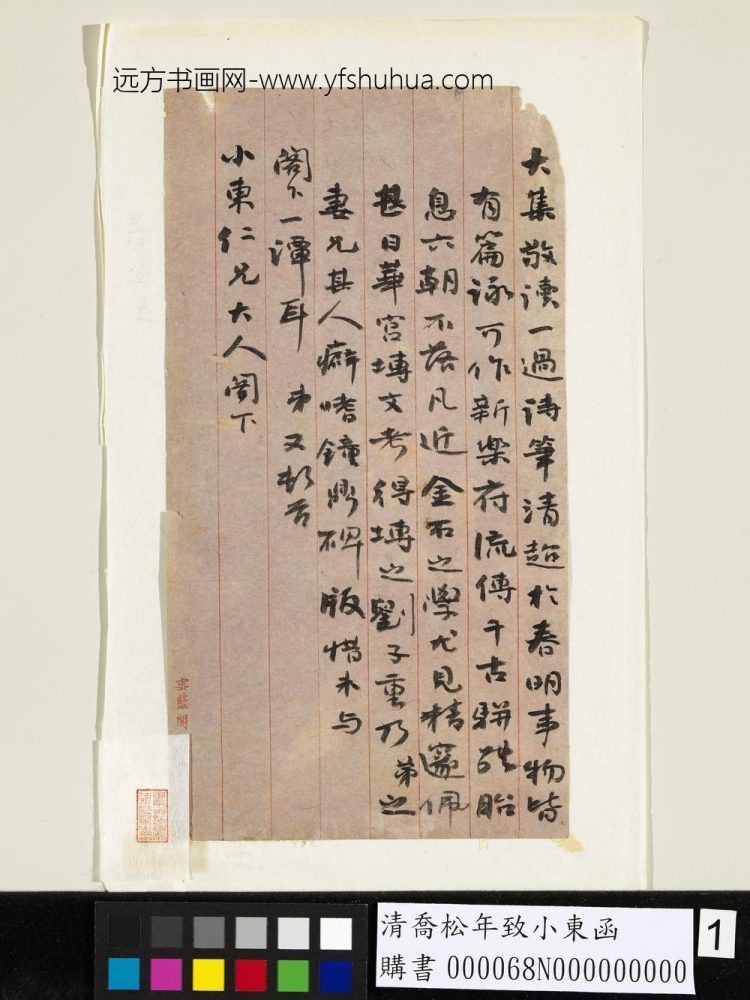 远方书画网-www.yfshuhua.com
大集敬读一過詩筆清超於春明事物皆
有篇詠可作新樂府流傳千古駢體胎
息六朝不落凡近金石之學尤見精邃佩
甚日華宮塼文考得塼之劉子重乃弟之
妻兄其人癖嗜鐘鼎碑版惜未与
閣下一譚耳 弟又頓首
小東仁兄大人閣下
雲藍閣
清喬松年致小東函
購書 000068N000000000
1